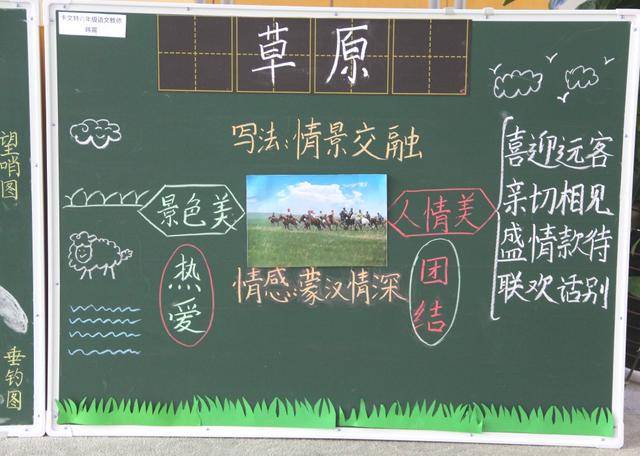 卡文特六年级语文教师
草原
写法:情景交融
景色美
热爱
人情美
团结
情感:蒙汉情深
喜迎远客
亲切相见
盛情款待
联欢话别
望哨图
垂钓图